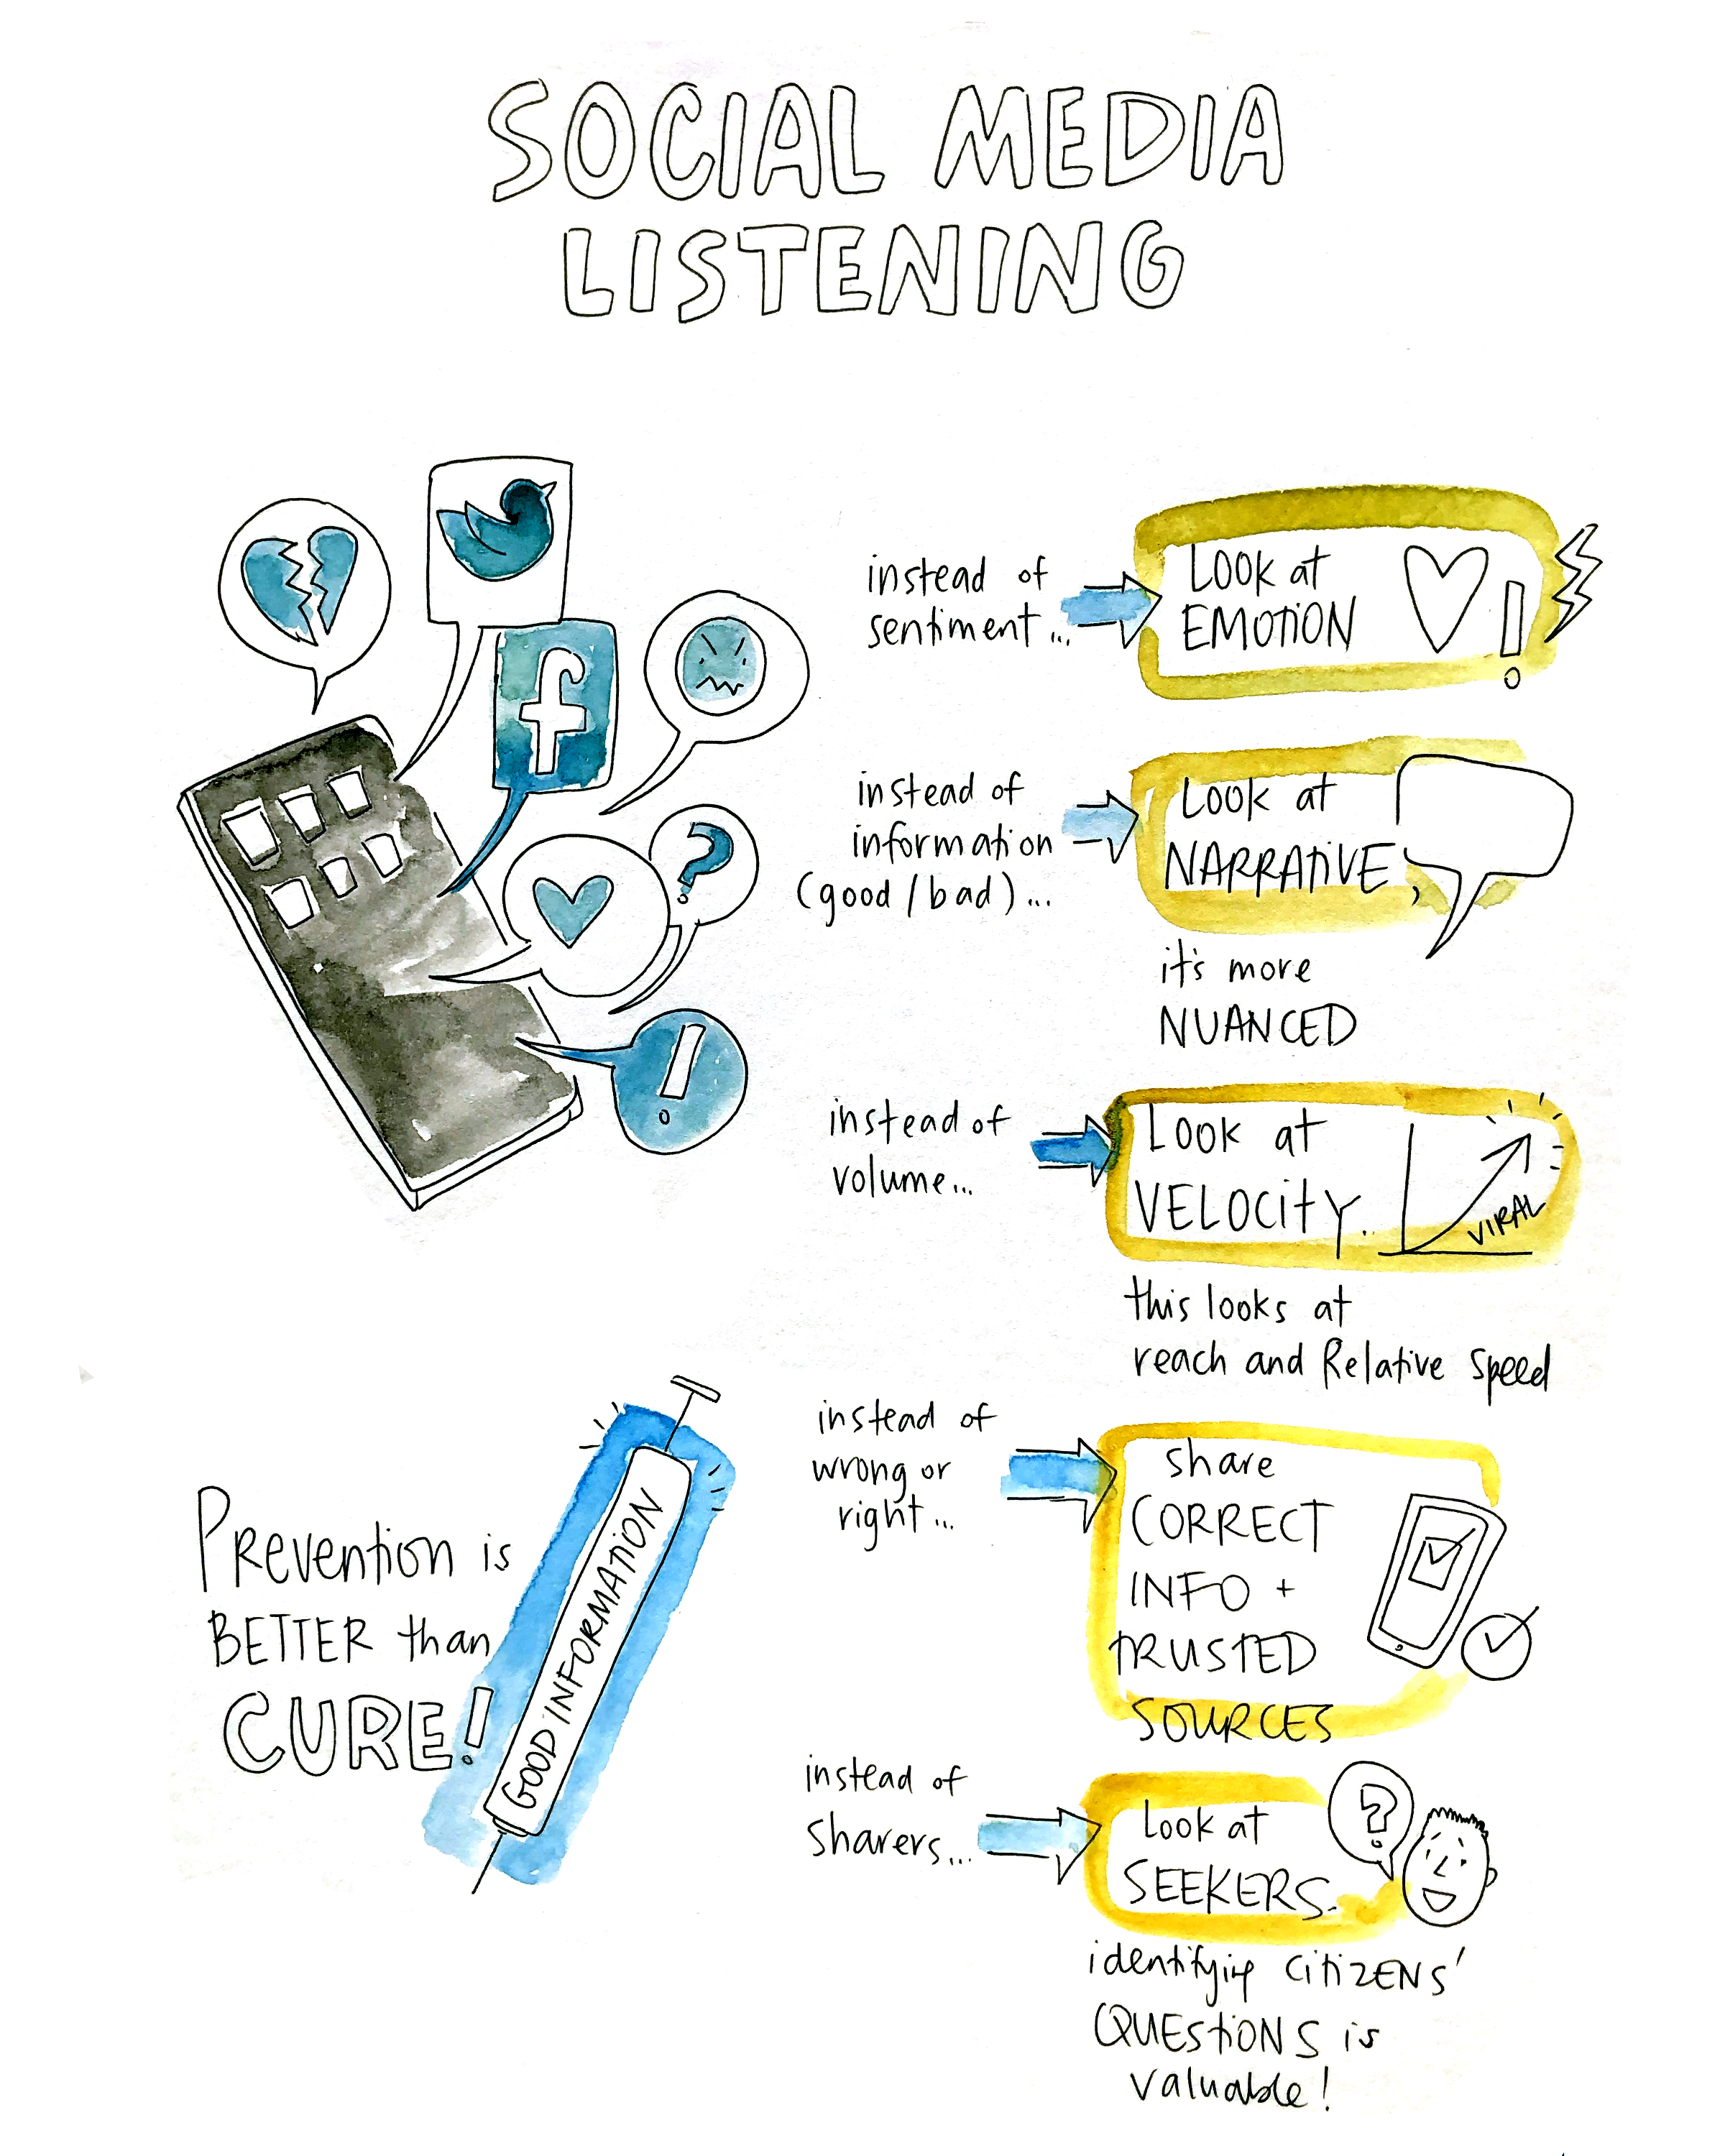 SOCIAL MEDIA
LISTENING
instead of
sentiment...
LOOK at
EMOTION
instead of
information
(good/bad)...
LOOK at
NARRATIVE,
it's more
NUANCED
instead of
volume...
LOOK at
VELOCITY.
VIRAL
this looks at
reach and Relative speed
instead of
wrong or
right...
share
CORRECT
INFO +
TRUSTED
SOURCES
instead of
sharers...
Look at
SEEKERS.
identifying CITIZENS'
QUESTIONS is
valuable!
PREVENTION is
BETTER than
CURE!
GOOD INFORMATION